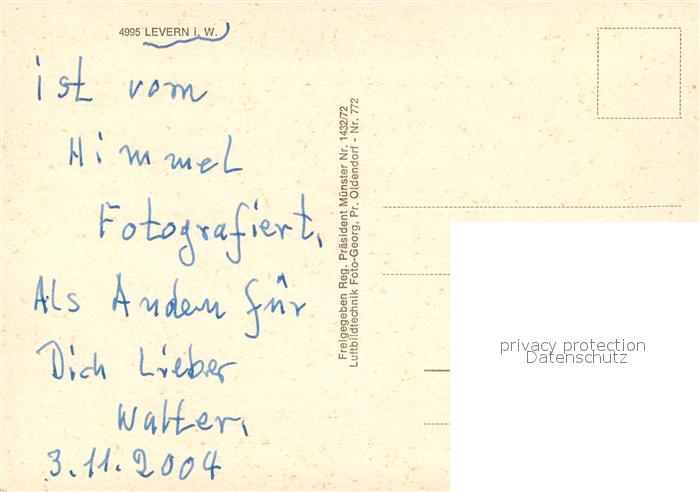 4995 LEVERN i. W.
ist vom
Himmel
Fotografiert,
Als Anden für
Dich Lieber
Walter,
3.11.2004
Freigegeben Reg. Präsident Münster Nr. 1432/72
Luftbildtechnik Foto-Georg, Pr. Oldendorf - Nr. 772
privacy protection
Datenschutz